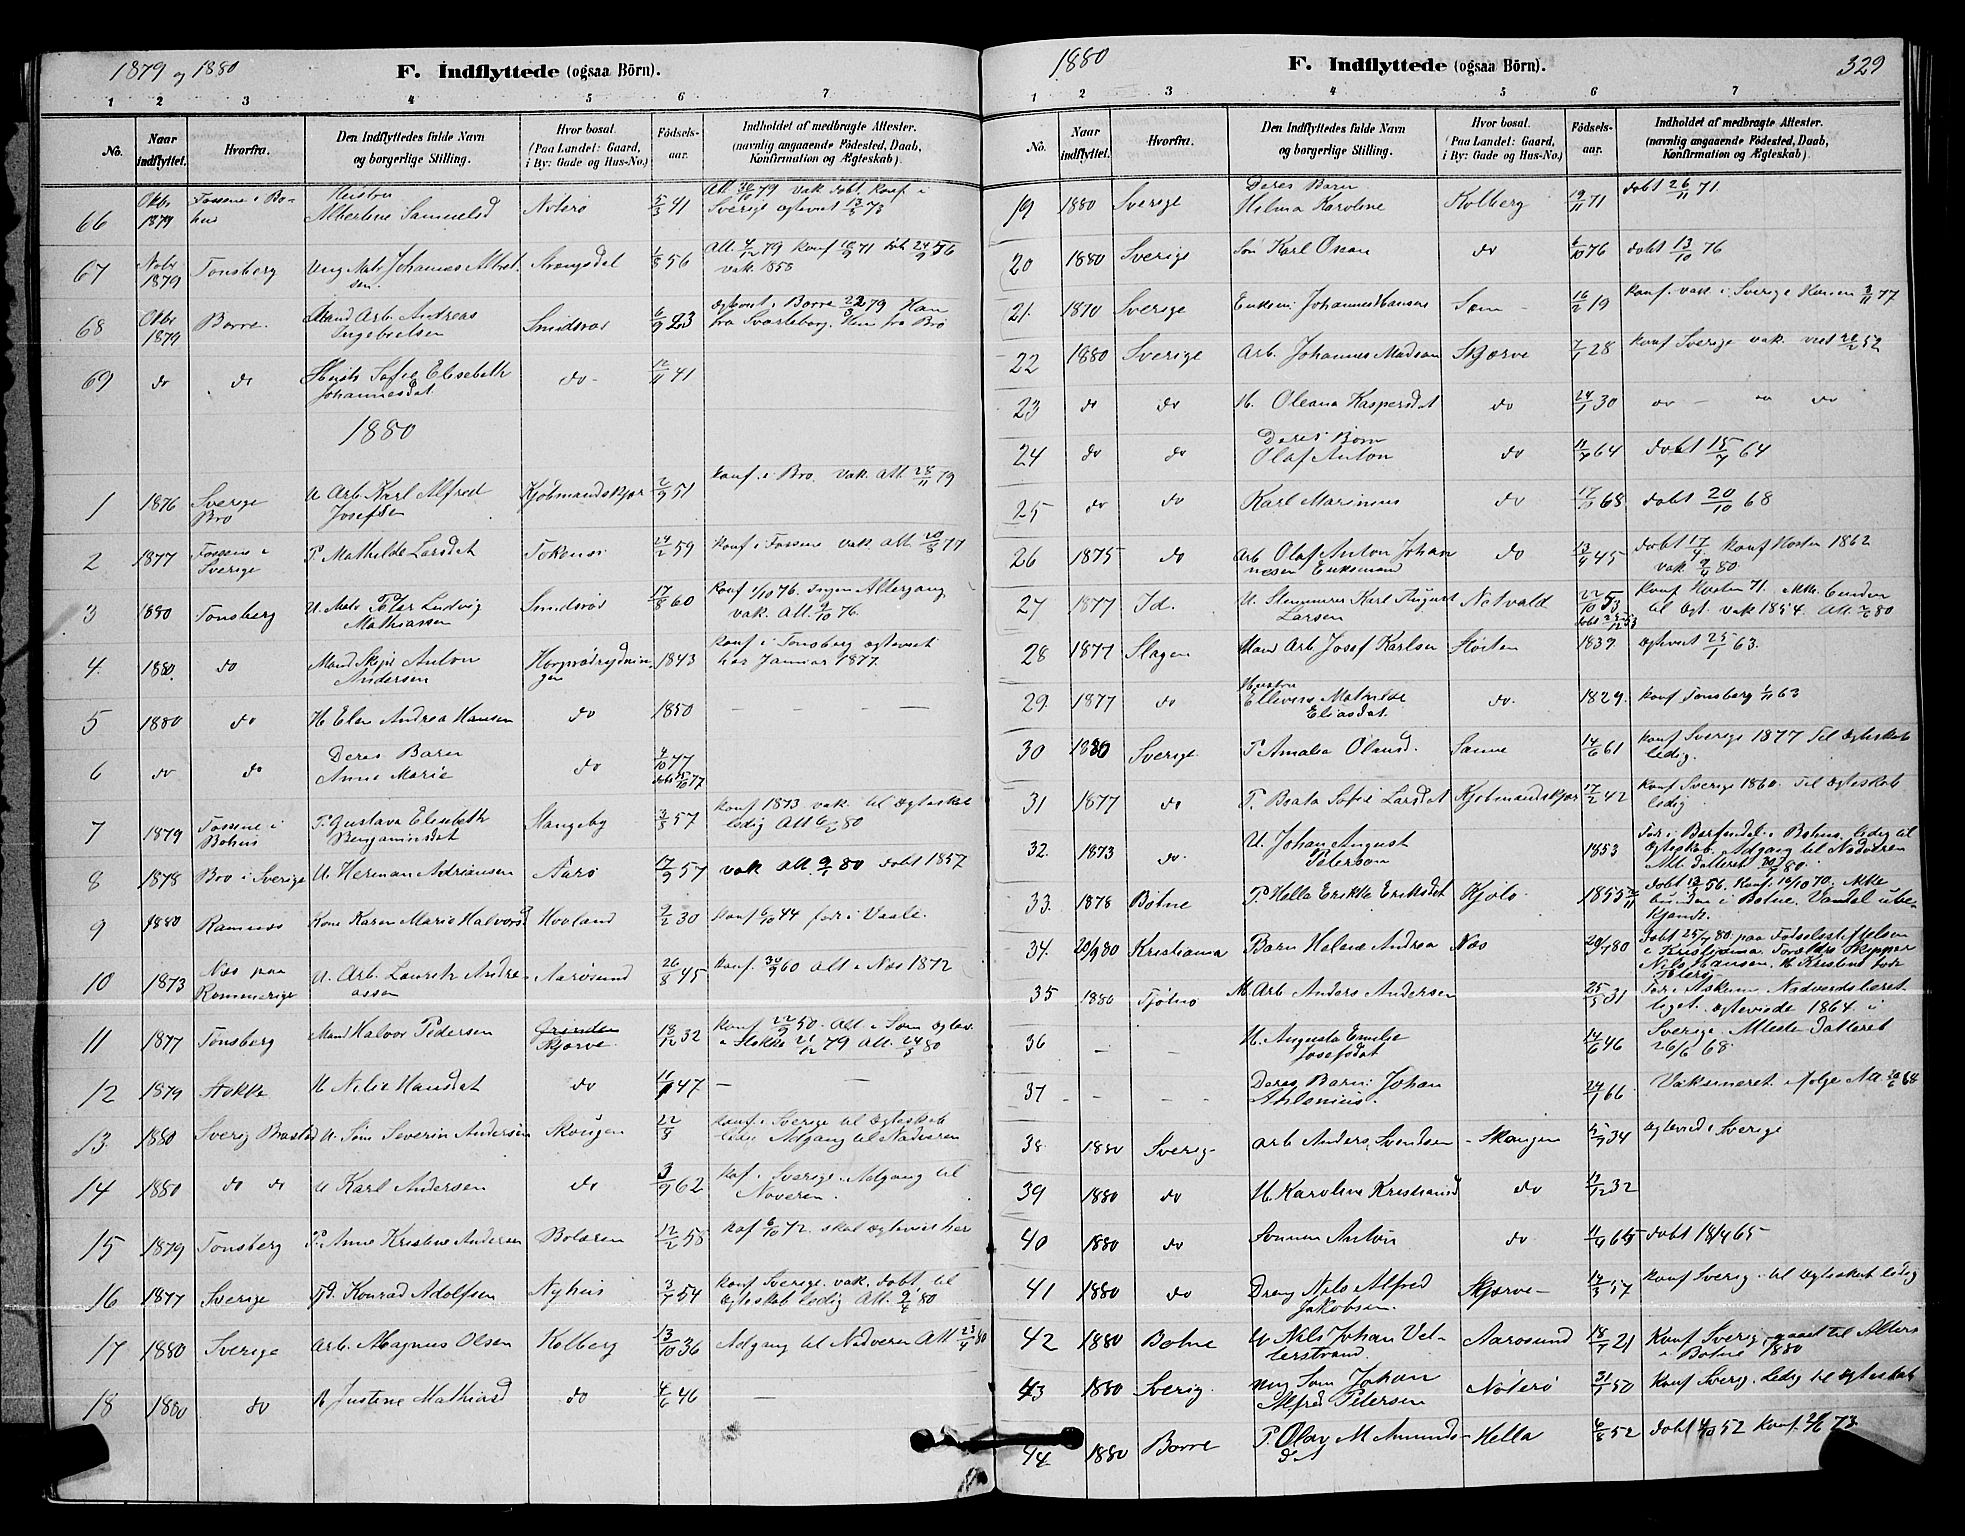 1879 og 1880
F. Indflyttede (ogsaa Börn).
1 2 3 4 5 6 7
No.
Naar indflyttet.
Hvorfra.
Den Indflyttedes fulde Navn og borgerlige Stilling.
Hvor bosat. (Paa Landet: Gaard, i By: Gade og Hus-No.)
Födsels-aar.
Indholdet af medbragte Attester. (navnlig angaaende Födested, Daab, Konfirmation og Ægteskab).
66 Oktb 1879 Fossene i Bohus Hustru Albertine Samuelsd Nöterö 5/3 41 Att. 30/10 79 vak. döbt. konf i Sverige
67 Novbr 1879 Tonsberg Ung Mats Johannes 1/8 56 Att. 4/12 79 konf 71 döb 24/9 56 vak. 1858
68 Oktb 1879 Borre. Mand Arb. Andreas Ingebretsen Smidsrød 6/9 23 Ægteviet i Borre 79 Han fra Svarteborg. Hun fra Bro
69 do do Hustr Sofie Elisebeth Johannesdat do 12/11 41
1880
1 1876 Sverige Bro U Arb Karl Alfred Josefsen Kjöbmandskjær 2/9 51 konf. i Bro. vak. Att 28/11 79
2 1877 Fossene i Sverige P. Mathilde Larsdat 24/2 59 konf i Fossene vak. Att. 20/8 77
3 1880 Tonsberg U. Mats Peter Ludvig Mathiassen Smidsröd 17/8 60 konf 1/10 76. ingen Altergang vak. Att. 9/10 76.
4. 1880. do Mand Skip. Anton Andersen 1843 konf i Tonsberg ægteviet her Januar 1877.
5 1880 do H. Elen Andrea Hansen do 1850 — — — —
6 do do Deres Barn Anne Marie do 4/10 77
7 1879 Fossene i Bohus P. Gustava Elisebeth Benjaminsdat Stangeby 3/3 57 konf 1873 vak. til Ægteskab ledig Att 6/2 80
8 1878 Bro i Sverige U. Herman Adriansen Aarö 17/9 57 vak Att 9/1 80 döbt 1857
9 1880 Ramnes Kone Karen Marie Halvorsd Hovland 9/2 30 konf 6/10 44 föd i Vaale.
10 1873 Næs paa Rommerige U. Arb. Lauritz Andreassen Aarösund 26/8 45 konf. 30/9 60 Att i Næs 1872
11 1877 Tonsberg Mand Halvor Pedersen Grinden Skjærve. 18/12 32 konf 22/9 50. Att i Sem ægtev. i Stokke 21/12 79 Att. 24/3 80
12 1879 Stokke H Nilie Hansdat do 47 — —
13. 1880 Sverig Brastad U. Söm Severin Andersen Skougen konf. i Sverige til Ægteskab ledig Adgang til Nadveren
14 1880 do do U Karl Andersen do 3/9 62 kof. i Sverige. Adgang til
15 1879 Tonsberg P. Anne Kristine Andersen Bolæren 12/2 58 kof 6/10 72. skal ægtevies her
16 1877 Sverige Konrad Adolfsen Nyhus 3/7 54 konf Sverige. vak. döbt til Ægteskab ledig Att. 80
17 1880 Sverige Arb. Magnus Olsen Kolberg 13/10 36 Adgang til Nadveren Att 23/4 80
18 1880 do H Justine Mathiasd do 4/6 46 —
1880
F. Indflyttede (ogsaa Börn).
329
1 2 3 4 5 6 7
No.
Naar indflyttet.
Hvorfra.
Den Indflyttedes fulde Navn og borgerlige Stilling.
Hvor bosat. (Paa Landet: Gaard, i By: Gade og Hus-No.)
Födsels-aar.
Indholdet af medbragte Attester. (navnlig angaaende Födested, Daab, Konfirmation og Ægteskab).
19 1880 Sverige Deres Barn Hilma Karoline Kolberg 19/11 71 döbt 26/11 71.
20 1880 Sverige Sön Karl Oscar do 6/10 76 döbt 13/10 76
21. 1870 Sverige Enkem: Johannes Hansen Sem 16/2 19
22 1880 Sverige Arb. Johannes Madsen Skjærve 7/1 28 konf Sverige vak. viet 52
23 do do H. Oleana Kaspersdat do 24/1 30 do — do do
24 do do Deres Börn Olaf Anton do 64 döbt 15/7 64
25 do do Karl Marinius do 68 döbt 20/10 68
26 1875 do Arb Olaf Anton Johannesen Enkemand do 13/4 45 döbt 17/4 konf Hosten 1862 vak. 80
27 1877 Id. U. Stenmurer Karl August Larsen Nesvald 22/10 53 konf Hosten 71. ikke bunden til Ægt. vak 1854. Att 80
28 1877 Slagen Mand Arb. Josef Karlsen Hösten 1839. Ægteviet 25/1 63.
29. 1877 do Hustru Ellevine Mathilde Eliasdat. do. 1829. konf Tonsberg 63
30 1880 Sverige P. Amalia Olausd. Sanne 14/6 61 konf Sverige 1877 Til Ægteskab ledig.
31 1877 do P. Beata Sofie Larsdat Kjöbmandskjær 17/2 42 konf Sverige 1860. Til Ægteskab ledig.
32. 1873 do. U. Johan August Peterson 1853 ledig til Ægteskab. Adgang til Nadveren Att. datteret 80.
33. 1878 Botne P. Helle Erikke Eriksdat Kjölö 1855 döbt 56. Konf. 70. ikke bunden i Botne. Vandel ubekjendt.
34. 20/9 80 Kristiania Barn Helene Andrea Næs 29/7 80 Döbt 25/7 80. paa Födselsstiftelsen i Kristjania. Forældre Skipper Nils Hansen. H Kristine
35 1880 Tjölnö M. Arb. Anders Andersen 25/5 31 Födt i Askum.
36 — — H. Augusta Emilie Josefsdat 14/6 46 Ægteviede 1864 i Sverige. Atteste datteret 26/6 68.
37 — — Deres Barn: Johan Antonius. 24/1 66. Vaksineret ifölge Att. 68
38 1880 Sverig Arb Anders Svendsen Skougen 5/9 34 ægtevied i Sverige
39 1880 do H. Karoline Kristiansd do 32
40 1880 do Sonnen Anton do 65 döbt 18/4 65
41 1880 do Dreng Nils Alfred Jakobsen. Skjærve 14/3 57 konf Sverig. til Ægteskab ledig
42 1880 Botne Nils Johan Vetterstrand Aarosund 18/7 21 Konf Sverig. gaaet til Alters i Botne 1880
43 1880 Sverig. ung Söm Johan Alfred Petersen Nöterö 31/1 50 konf Sverig. Ledig til Ægteskab
44 1880 Borre P. Olav M Amundsdat Hella 4/8 52 döbt 52 konf. 73